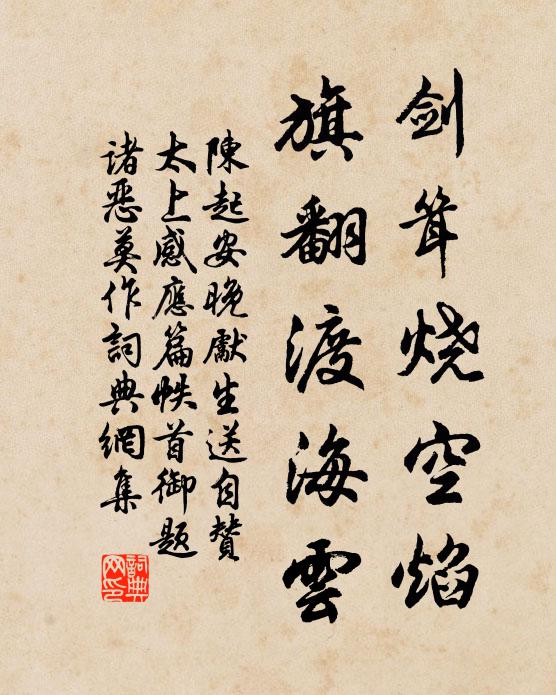 剑耸烧空焰
旗翻渡海雲
陳起安晚獻生送自贊
太上感應篇帙首御題
諸恶莫作詞典網集
詞典网印